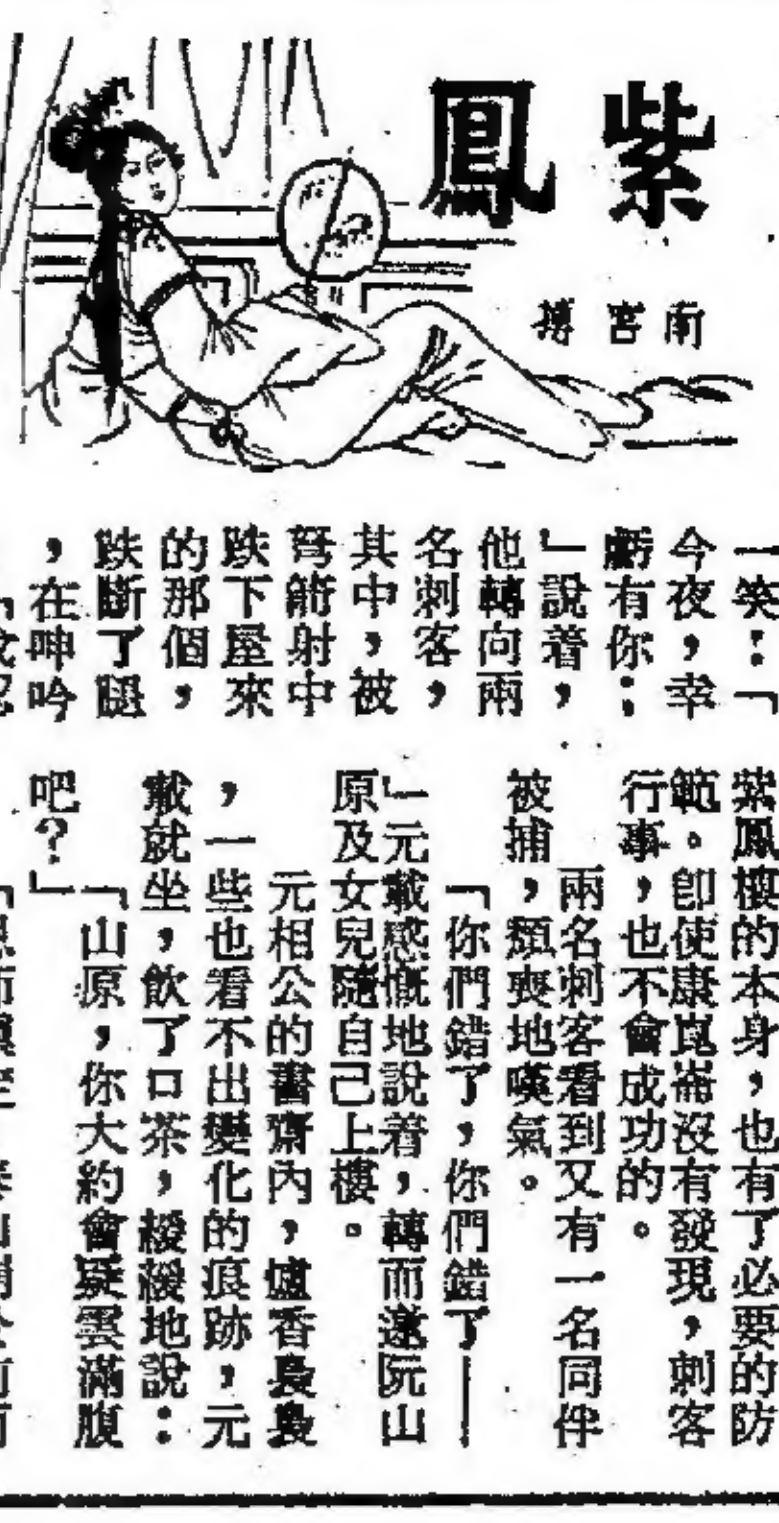 紫鳳
南宮搏
一笑：「
今夜，幸
虧有你；
」說着，
他轉向兩
名刺客，
其中，被
弩箭射中
跌下屋來
的那個，
跌斷了腿
，在呻吟
紫鳳樓的本身，也有了必要的防
範。卽使康崑崙沒有發現，刺客
行事，也不會成功的。
兩名刺客看到又有一名同伴
被捕，頹喪地嘆氣。
「你們錯了，你們錯了——
」元載感慨地說着，轉而邀阮山
原及女兒隨自己上樓。
元相公的書齋內，爐香裊裊
，一些也看不出變化的痕跡，元
載就坐，飲了口茶，緩緩地說：
「山原，你大約會疑雲滿腹
吧？」